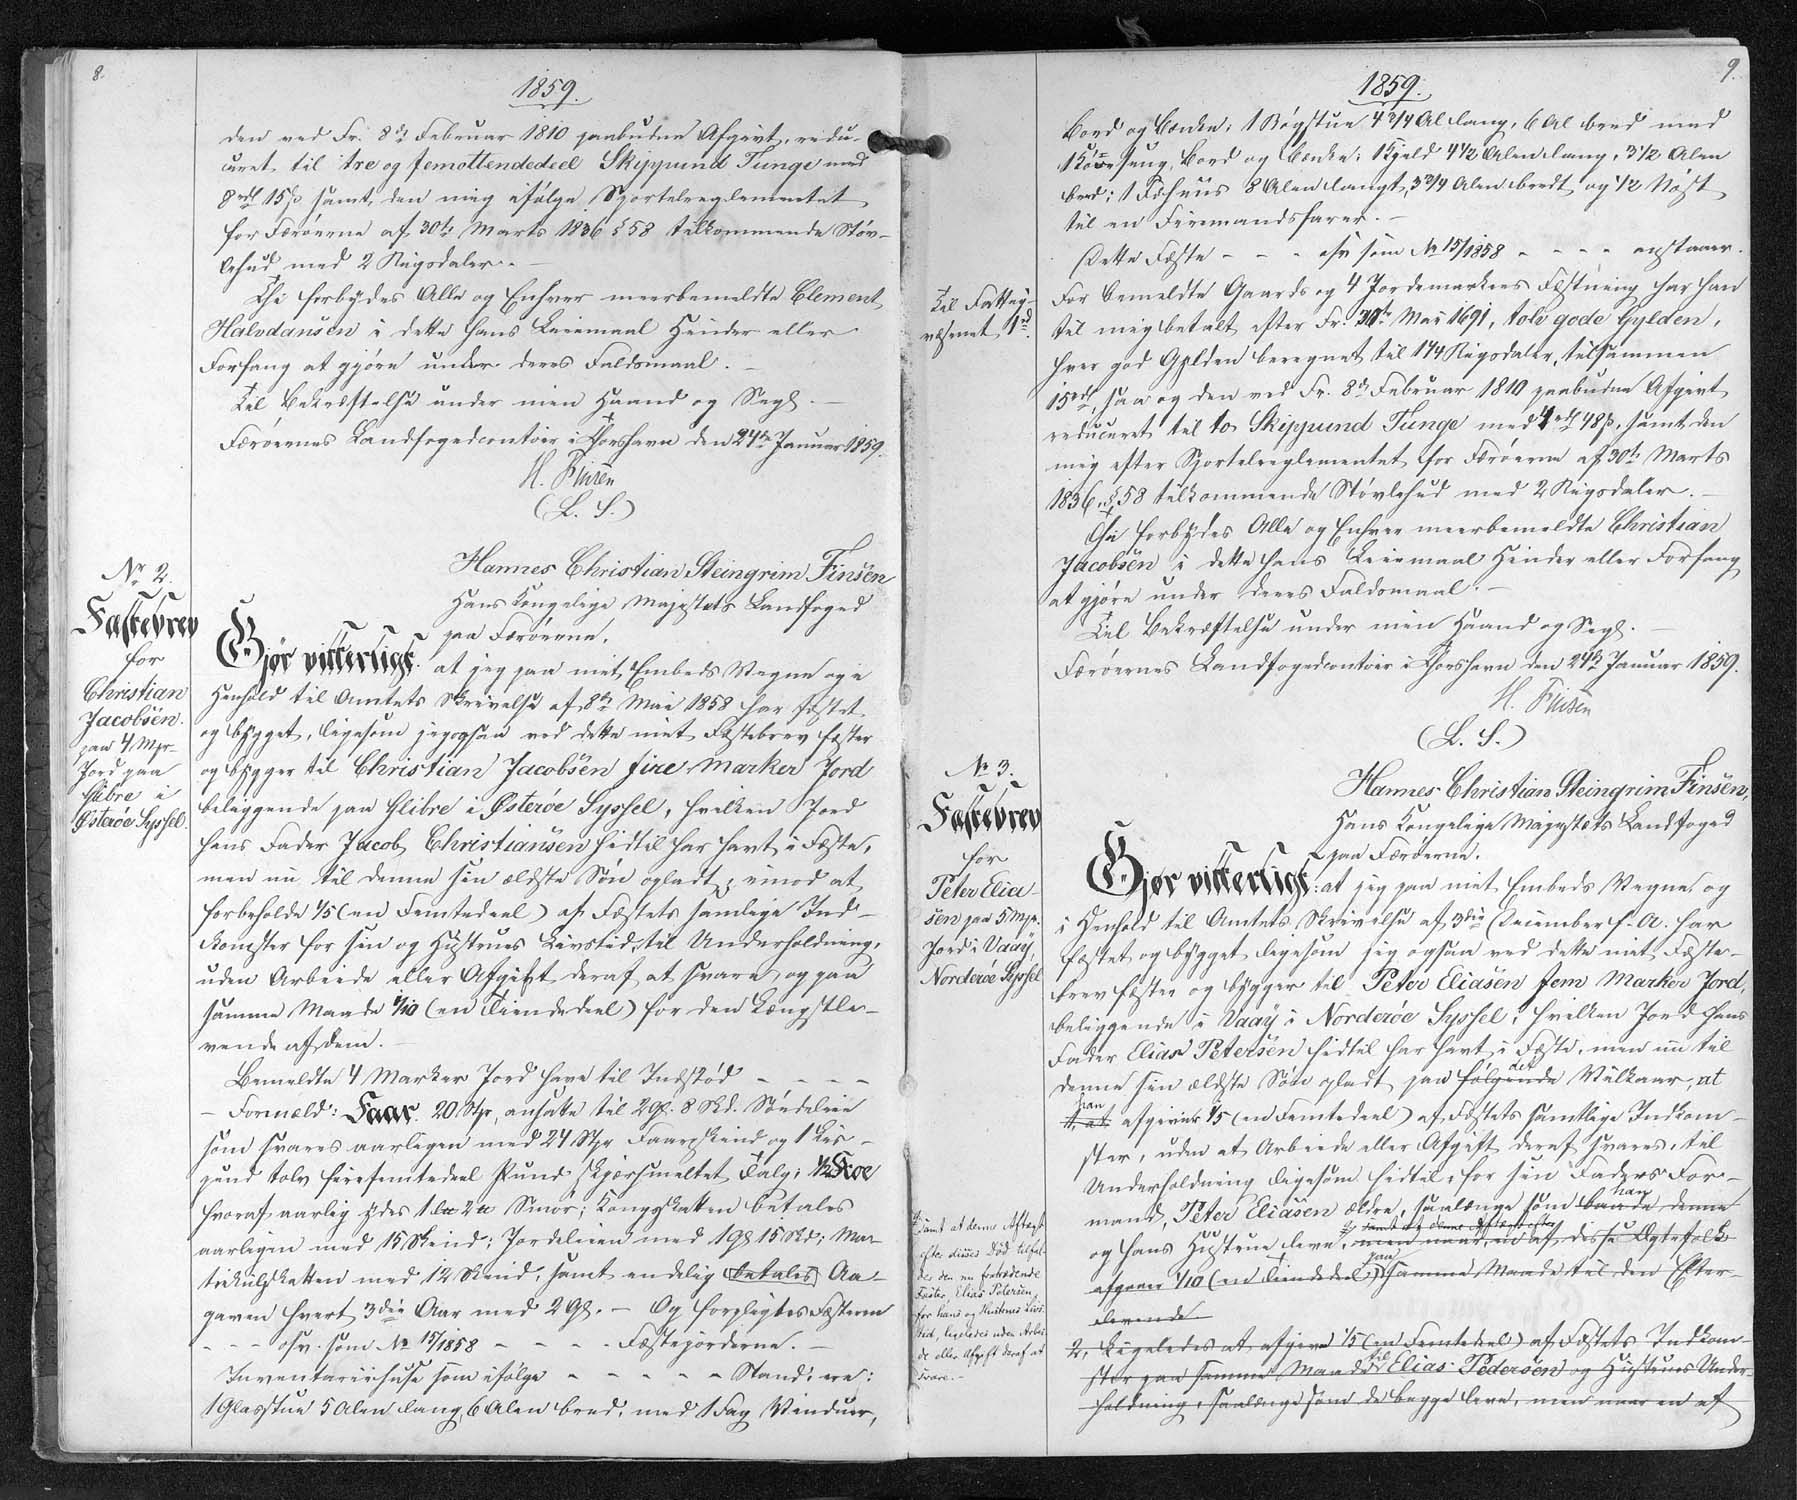 8.
1859.
den ved Fr. 8de Februar 1810 paabudne Afgivt, redu-
ceret til tre og femottendedeel Skippund Tunge med
8 rdl 15 s samt, den mig ifølge Sportelreglementet
for Færøerne af 30te Marts 1836 § 58 tilkommende Støv-
lehud med 2 Rigsdaler. -
Thi forbydes Alle og Enhver meerbemeldte Clement
Halvdansen i dette hans Leiemaal Hinder eller
Forfang at gjøre under deres Faldsmaal. -
Til Bekræftelse under min Haand og Segl. -
Færøernes Landfogedcontoir i Thorshavn den 24de Januar 1859.
H. Finsen
(L. S.)
No 2.
Fæstebrev
for
Christian
Jacobsen
paa 4 Mrk.
Jord paa
Glibre i
Østerøe Syssel.
Hannes Christian Steingrim Finsen
Hans Kongelige Majestæts Landfoged
paa Færøerne,
Gjør vitterligt: at jeg paa mit Embeds Vegne og i
Henhold til Amtets Skrivelse af 8de Mai 1858 har fæstet
og bygget, ligesom jeg ogsaa ved dette mit Fæstebrev fæster
og bygger til Christian Jacobsen fire Marker Jord
beliggende paa Glibre i Østerøe Syssel, hvilken Jord
hans Fader Jacob Christiansen hidtil har havt i Fæste,
men nu til denne sin ældste Søn opladt, imod at
forbeholde 1/5 (en Femtedeel) af Fæstets samlige Ind-
komster for sin og Hustrues Livstid, til Underholdning,
uden Arbeide eller Afgift deraf at svare, og paa
samme Maade 1/10 (en Tiendedeel) for den Længstle-
vende af dem. -
Bemeldte 4 Marker Jord have til Indstød - - - -
- Formæld: Faar 20 Stk, ansatte til 2 Gl. 8 Skd. Søndeleie
som svares aarligen med 24 Stk Faareskind og 1 Lis-
pund tolv firefemtedeel Pund skjærsmeltet Talg; 1/2 Koe
hvoraf aarlig ydes 1 Lo 2 Smør; Kongsskatten betales
aarligen med 15 Skind; Jordeleien med 1 Gl 15 Skd; Ma-
trikulskatten med 12 Skind, samt endelig betales Aa-
gaven hvert 3die Aar med 2 Gl. - Og forpligtes Fæsteren
- - - osv. som No 15/1858 - - - - Fæstejorderne. -
Inventariihuse som ifølge - - - - - Stand, ere:
1 Glasstue 5 Alen lang, 6 Alen bred, med 1 Fag Vinduer,
9.
1859.
Bord og Bænke; 1 Røgstue 4 3/4 Al lang, 6 Al bred med
1 Køiesæng, Bord og Bænke; 1 Hjeld 4 1/2 Alen lang, 3 1/2 Alen
bred; 1 Fæhuus 8 Alen langt, 3 3/4 Alen bredt og 1/2 Nøst
til en Firemandsfarer. -
Dette Fæste - - - osv som No 15/1858 - - - - opstaaer.
Til Fattig-
væsenet 1 rd.
For bemeldte Gaards og 4 Jordemarkers Fæstning har han
til mig betalt efter Fr. 30te Mai 1691, tolv gode Gylden,
hver god Gylden beregnet til 1 1/4 Rigsdaler, tilsammen
15 rdl, saa og den ved Fr. 8de Februar 1810 paabudne Afgivt
reduceret til to Skippund Tunge med 4 rdl 48 s, samt den
mig efter Sportelreglementet for Færøerne af 30te Marts
1836, § 58 tilkommende Støvlehud med 2 Rigsdaler. -
Thi forbydes Alle og Enhver meerbemeldte Christian
Jacobsen i dette hans Leiemaal Hinder eller Forfang
at gjøre under deres Faldsmaal. -
Til Bekræftelse under min Haand og Segl. -
Færøernes Landfogedcontoir i Thorshavn den 24de Januar 1859.
H. Finsen
(L. S.)
No 3.
Fæstebrev
for
Peter Elia-
sen paa 5 Mrk.
Jord i Vaaÿ,
Norderøe Syssel
Hannes Christian Steingrim Finsen,
Hans Kongelige Majestæts Landfoged
paa Færøerne,
Gjør vitterligt: at jeg paa mit Embeds Vegne og
i Henhold til Amtets Skrivelse af 3die December f. A. har
fæstet og bygget ligesom jeg ogsaa ved dette mit Fæste-
brev fæster og bygger til Peter Eliasen fem Marker Jord,
beliggende i Vaaÿ i Norderøe Syssel, hvilken Jord hans
Fader Elias Petersen hidtil har havt i Fæste, men nu til
denne sin ældste Søn opladt paa følgende det Vilkaar, at
1, at han afgiver 1/5 (en Femtedeel) af Fæstets samtlige Indkom-
ster, uden at Arbeide eller Afgift deraf svares, til
Underholdning ligesom hidtil, for sin Faders For-
mand, Peter Eliasen ældre, saalænge som baade han denne
og hans Hustrue leve, men naar en af disse Ægtefolk
samt at denne Aftægt efter
afgaaer 1/10 (en Tiendedeel) paa samme Maade til den Efter-
levende
2, Ligeledes at afgive 1/5 (en Femtedeel) af Fæstets Indkom-
ster paa samme Maade til Elias Pedersen og Hustrues Under-
holdning, saalænge som de begge leve, men naar en af
samt at denne Aftægt
efter disses Død tilfal-
der den nu fratrædende
Fæster, Elias Petersen,
for hans og Hustrues Livs-
tid, ligeledes uden Arbei-
de eller Afgift deraf at
svare. -